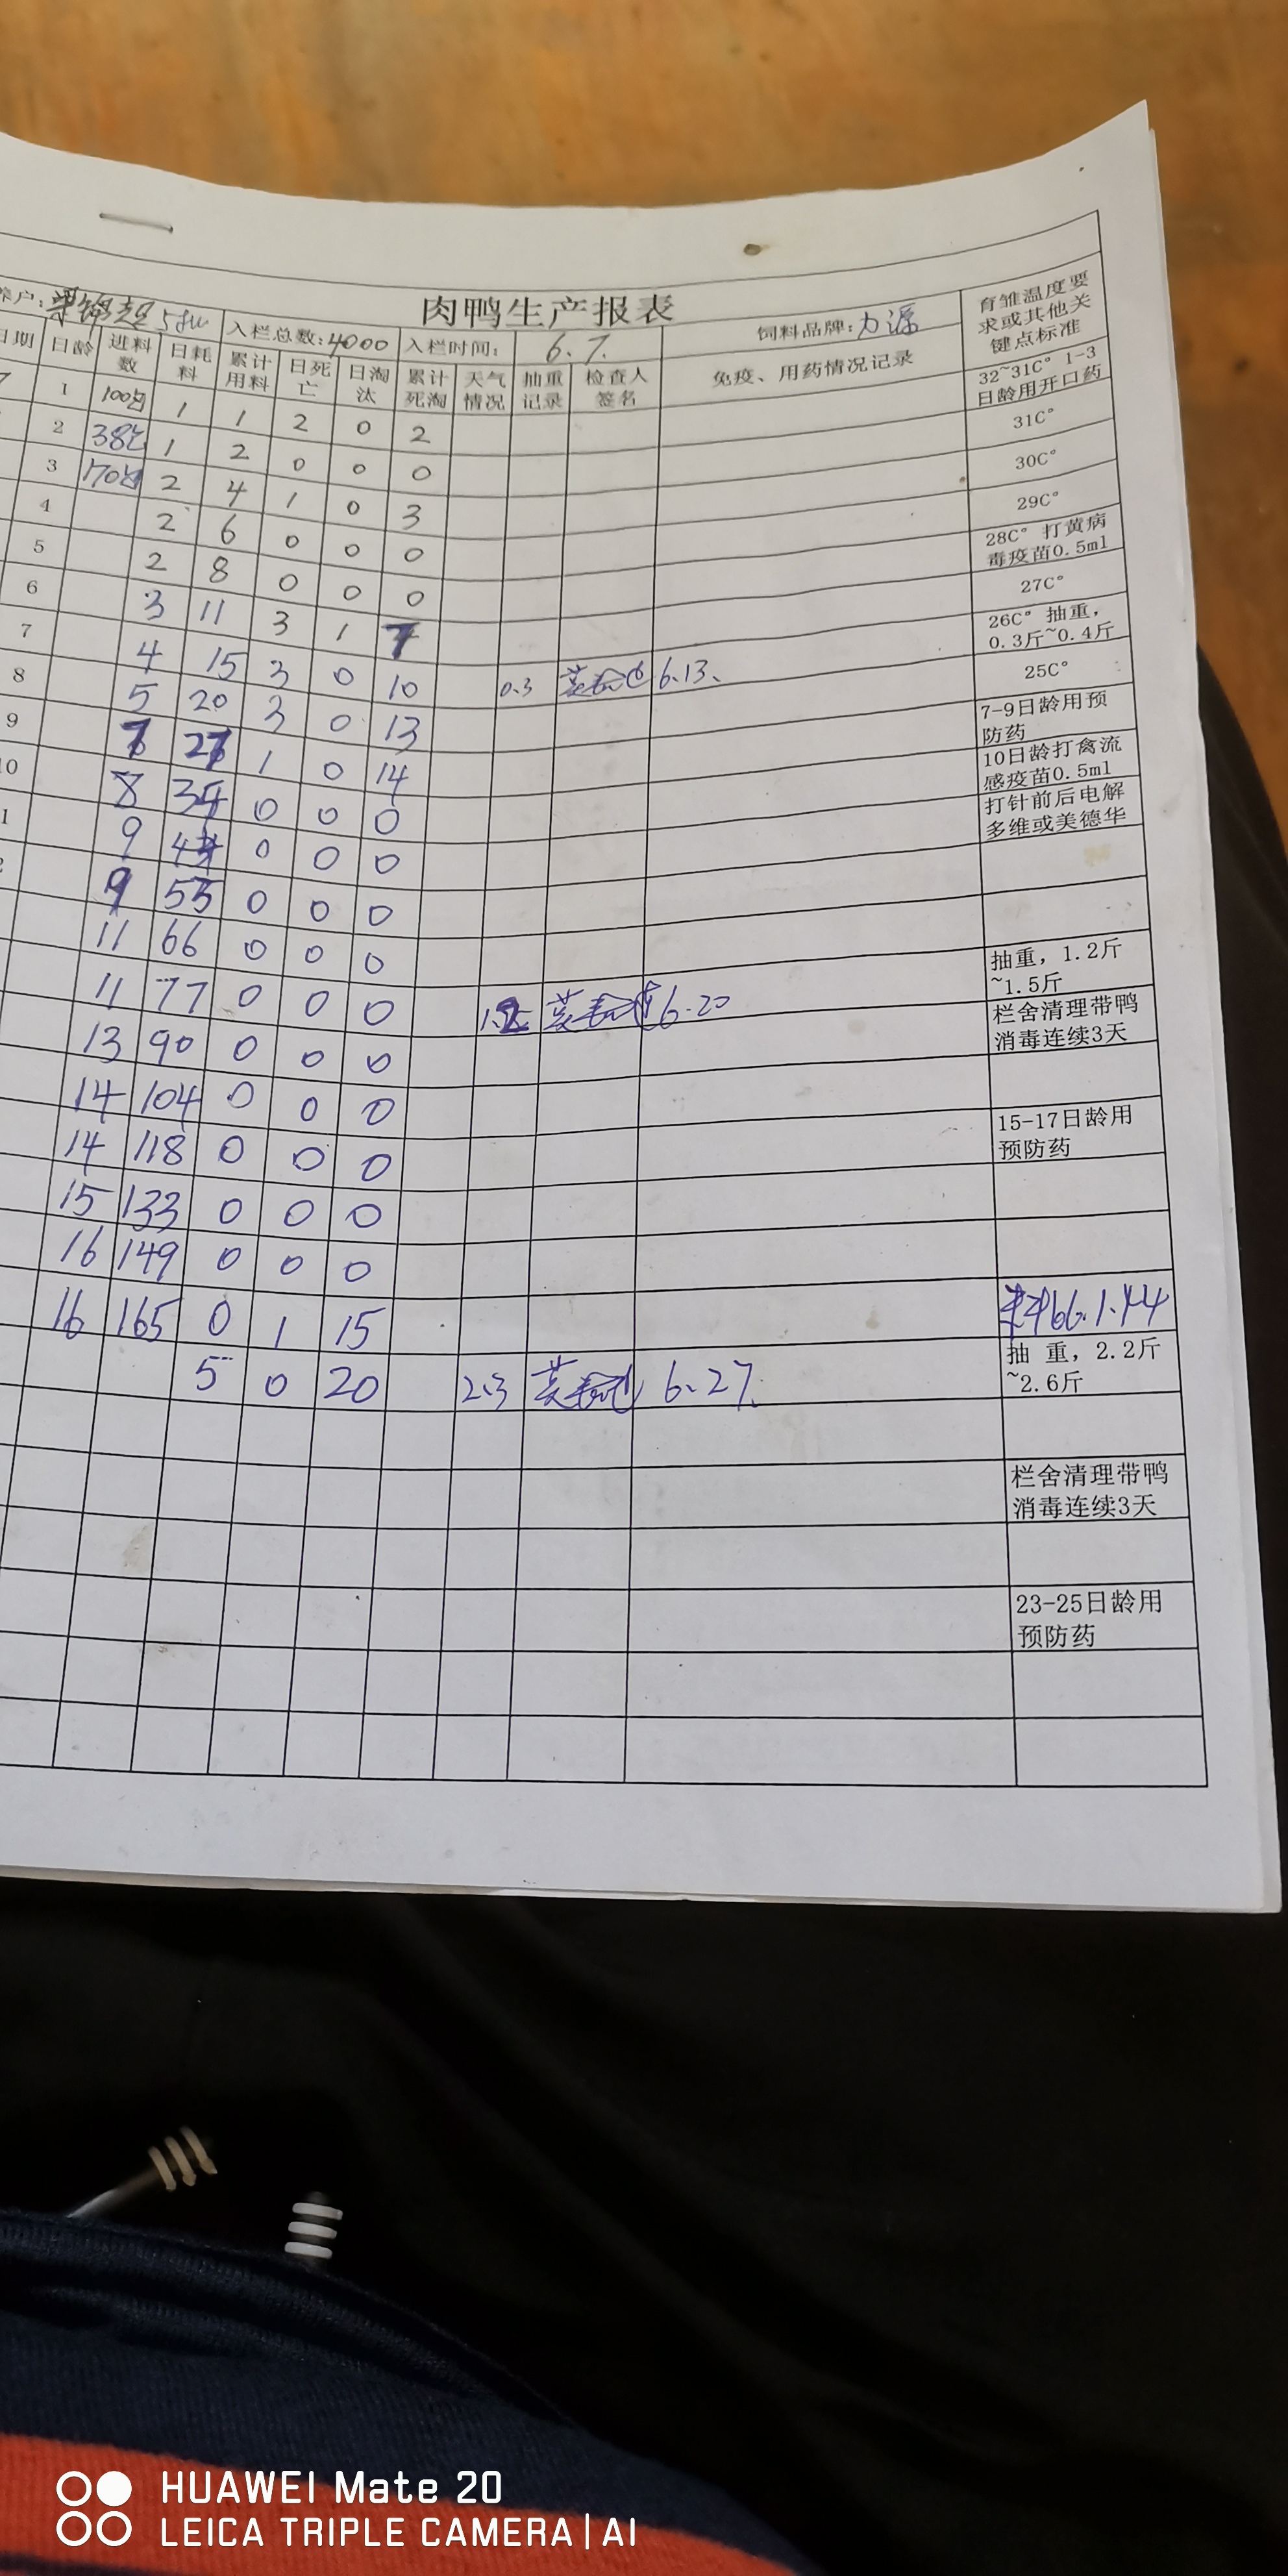 肉鸭生产报表
养户: 入栏总数:4000 入栏时间: 6.7. 饲料品牌:力源 育雏温度要求或其他关键点标准
日期 日龄 进料数 日耗料 累计用料 日死亡 日淘汰 累计死淘 天气情况 抽重记录 检查人签名 免疫、用药情况记录
7 1 100包 1 1 2 0 2 32~31C° 1-3日龄用开口药
2 38包 1 2 0 0 0 31C°
3 170包 2 4 1 0 3 30C°
4 2 6 0 0 0 29C°
5 2 8 0 0 0 28C° 打黄病毒疫苗0.5ml
6 3 11 3 1 7 27C°
7 4 15 3 0 10 0.3 6.13、 26C° 抽重,0.3斤~0.4斤
8 5 20 3 0 13 25C°
9 7 27 1 0 14 7-9日龄用预防药
10 8 35 0 0 0 10日龄打禽流感疫苗0.5ml
1 9 44 0 0 0 打针前后电解多维或美德华
2 9 55 0 0 0
11 66 0 0 0
11 77 0 0 0 6.20 抽重,1.2斤~1.5斤
13 90 0 0 0 栏舍清理带鸭消毒连续3天
14 104 0 0 0
14 118 0 0 0 15-17日龄用预防药
15 133 0 0 0
16 149 0 0 0
16 165 0 1 15
5 0 20 2.3 6.27. 抽 重,2.2斤~2.6斤
栏舍清理带鸭消毒连续3天
23-25日龄用预防药
HUAWEI Mate 20
LEICA TRIPLE CAMERA | AI